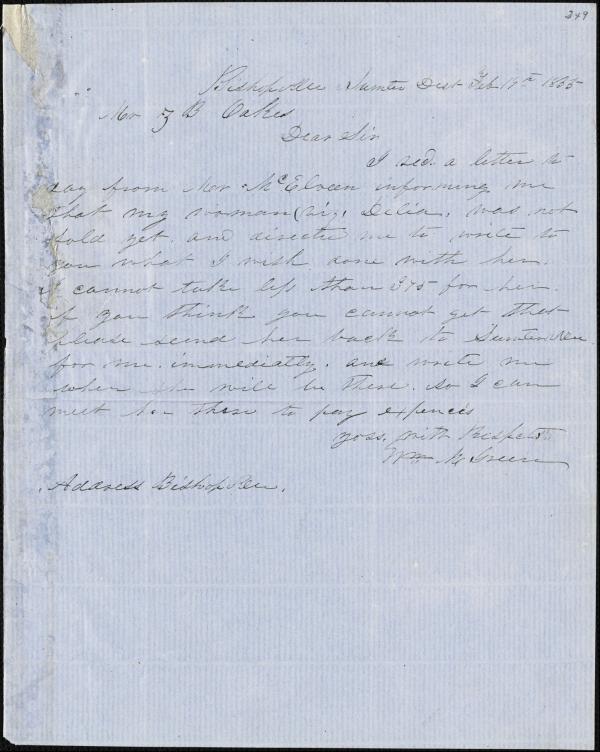 249
Bishopville Sumter Dist Feb 19th 1855
Mr Z B Oakes
Dear Sir
I recd. a letter to
day from Mr. McElveen informing me
that my woman (viz. Delia. was not
sold yet. and directed me to write to
you what I wish done with her.
I cannot take less than 375 for her.
If you think you cannot get that
please send her back to Sumterville
for me. immediatly. and write me
when she will be there. so I can
meet her there to pay expences
yoss. with Respects
Wm M Green
Address Bishopville.